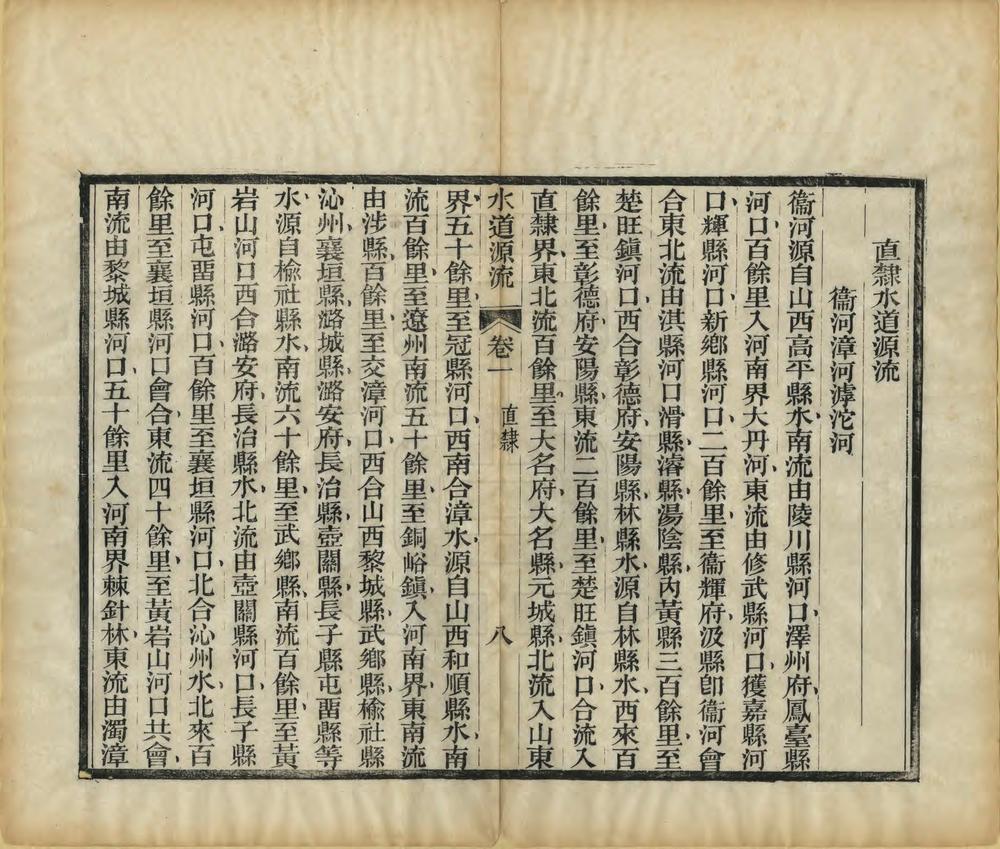 直隸水道源流
衞河漳河滹沱河
衞河源自山西高平縣水南流由陵川縣河口澤州府鳳臺縣
河口百餘里入河南界大丹河東流由修武縣河口獲嘉縣河
口輝縣河口新鄉縣河口二百餘里至衞輝府汲縣卽衞河會
合東北流由淇縣河口滑縣濬縣湯陰縣內黃縣三百餘里至
楚旺鎮河口西合彰德府安陽縣林縣水源自林縣水西來百
餘里至彰德府安陽縣東流二百餘里至楚旺鎮河口合流入
直隸界東北流百餘里至大名府大名縣元城縣北流入山東
水道源流 卷一 直隸 八
界五十餘里至冠縣河口西南合漳水源自山西和順縣水南
流百餘里至遼州南流五十餘里至銅峪鎮入河南界東南流
由涉縣百餘里至交漳河口西合山西黎城縣武鄉縣榆社縣
沁州襄垣縣潞城縣潞安府長治縣壺關縣長子縣屯畱縣等
水源自榆社縣水南流六十餘里至武鄉縣南流百餘里至黃
岩山河口西合潞安府長治縣水北流由壺關縣河口長子縣
河口屯畱縣河口百餘里至襄垣縣河口北合沁州水北來百
餘里至襄垣縣河口會合東流四十餘里至黃岩山河口共會
南流由黎城縣河口五十餘里入河南界棘針林東流由濁漳